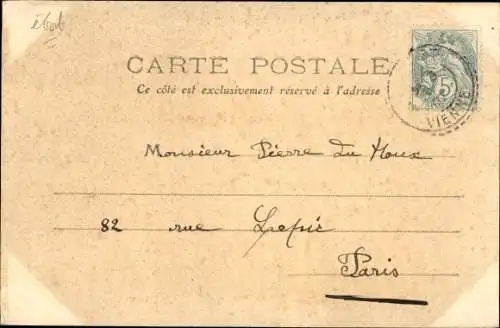 CARTE POSTALE
Ce côté est exclusivement réservé à l'adresse
5
VIENNE
Monsieur Pierre du Houx
82 rue Lepic
Paris